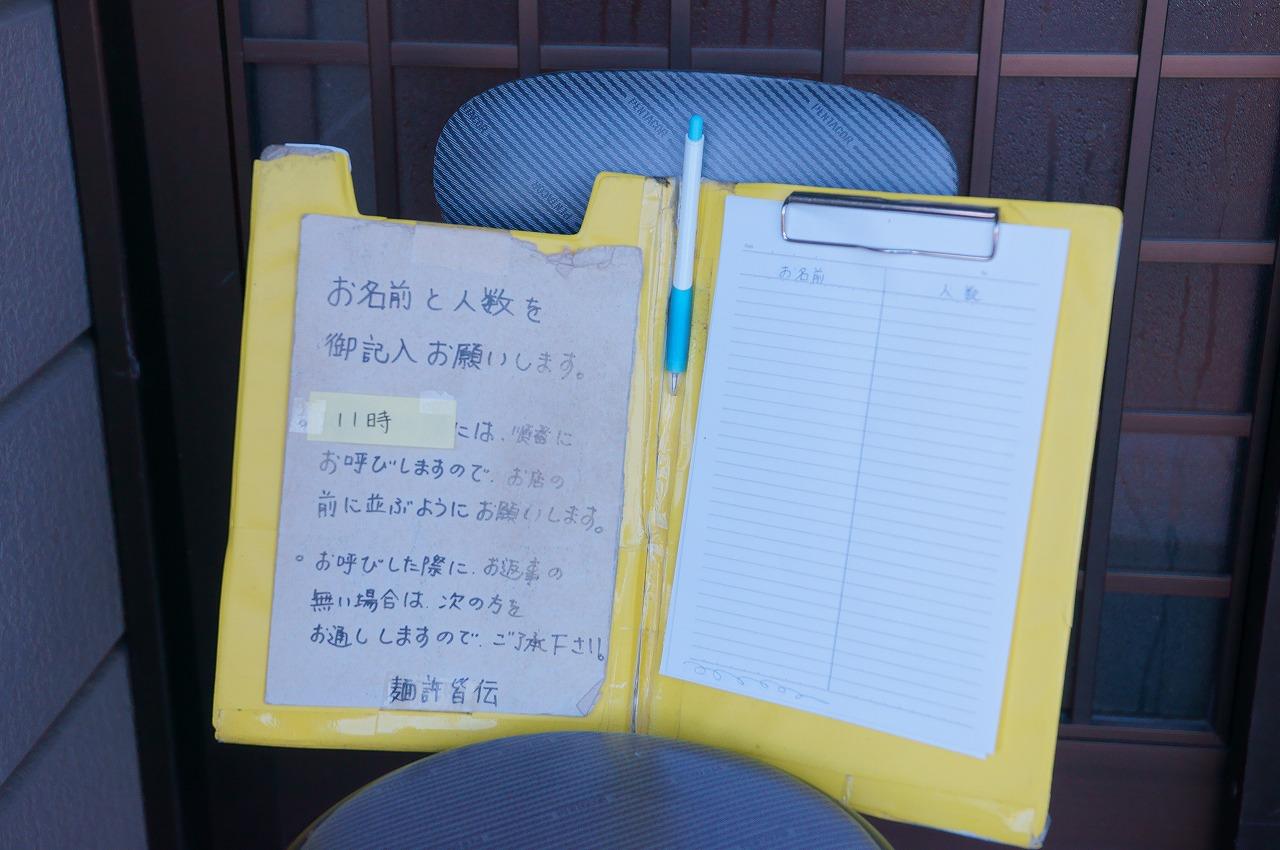 PENTAGOR
PENTAGOR
お名前と人数を
御記入お願いします。
11時には、順番に
お呼びしますので、お店の
前に並ぶようにお願いします。
。お呼びした際に、お返事の
無い場合は、次の方を
お通ししますので、ご了承下さい。
麺許皆伝
お名前
人数